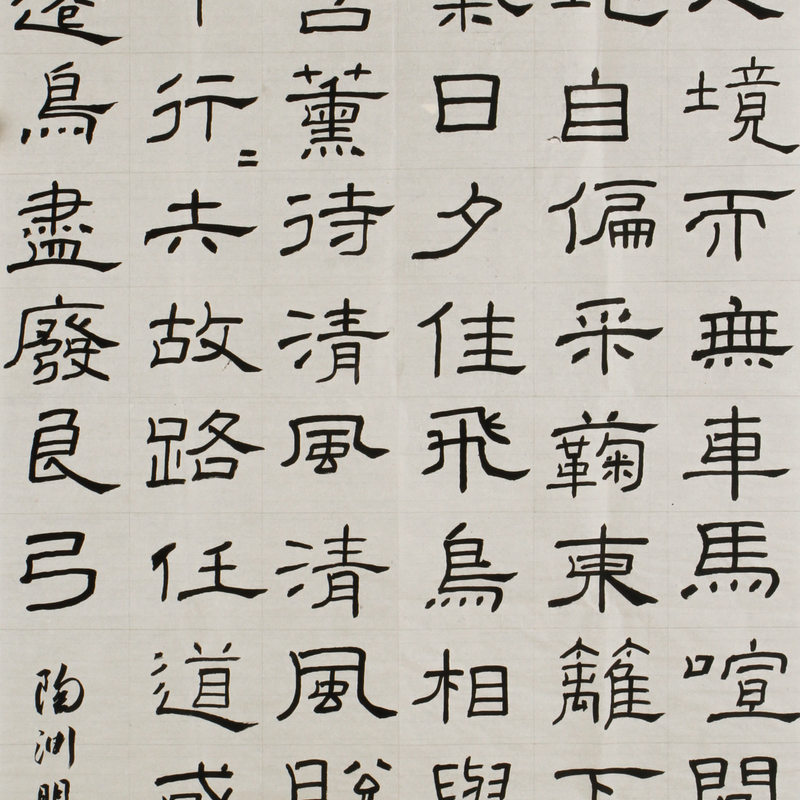 人境而無車馬喧問
地自偏采蘜東籬下
氣日夕佳飛鳥相與
含薰待清風清風脫
中行〻失故路任道或
還鳥盡廢良弓
陶淵明